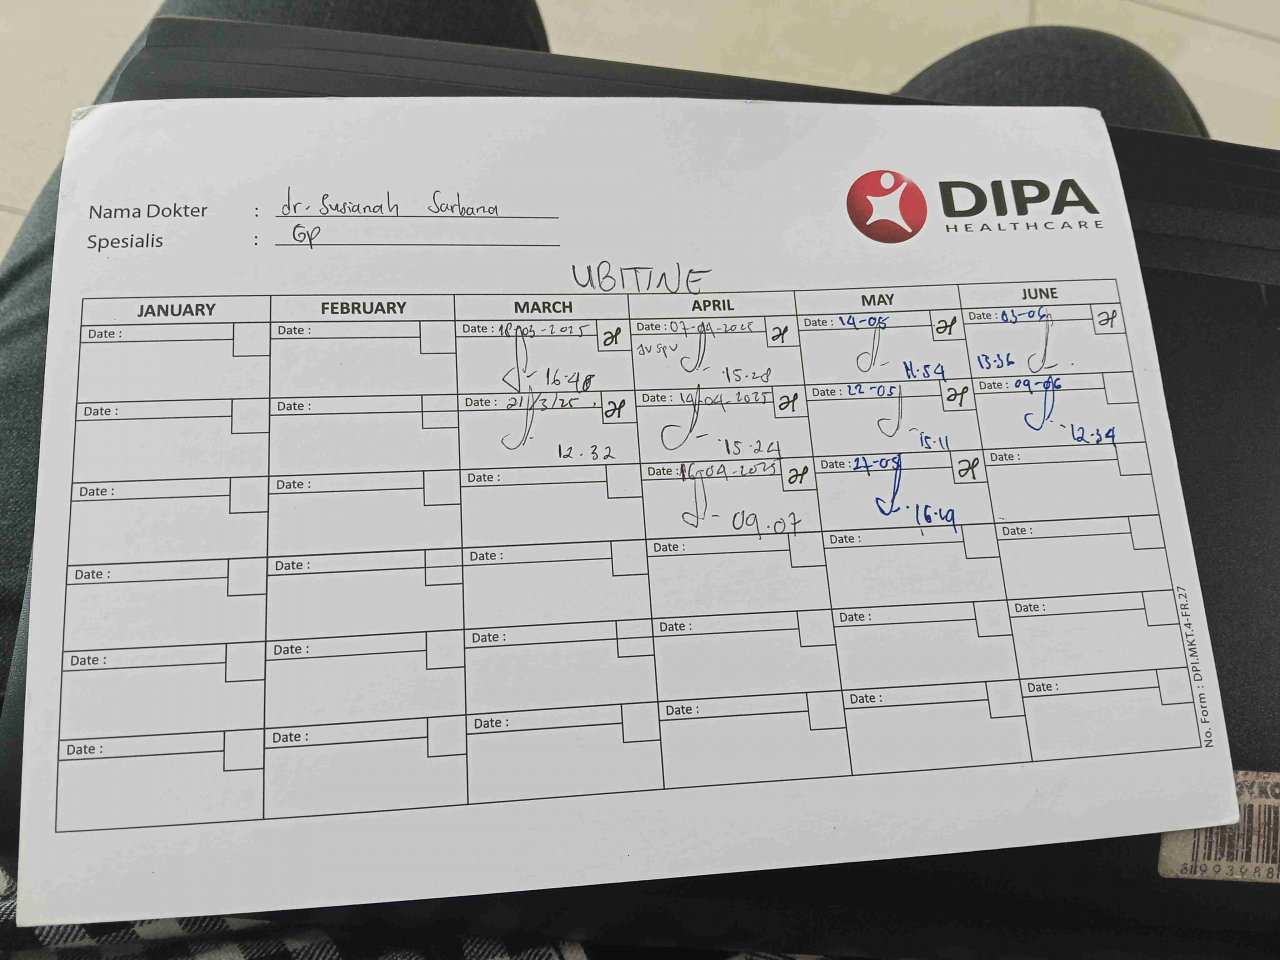 Nama Dokter : dr. Susianah Sarbana
Spesialis : GP
DIPA
HEALTHCARE
UBITINE
JANUARY FEBRUARY MARCH APRIL MAY JUNE
Date : Date : Date : 18-03-2025 Date : 07-04-2025 Date : 14-05 Date : 03-06
Jv Spv
16.48 15.28 11.54 13.36
Date : Date : Date : 21/3/25 Date : 14-04-2025 Date : 22-05 Date : 09-06
12.32 15.24 15.11 12.34
Date : Date : Date : Date : 16-04-2025 Date : 27-05 Date :
09.07 16.49
Date : Date : Date : Date : Date : Date :
Date : Date : Date : Date : Date : Date :
Date : Date : Date : Date : Date : Date :
No. Form : DPI.MKT.4-FR.27